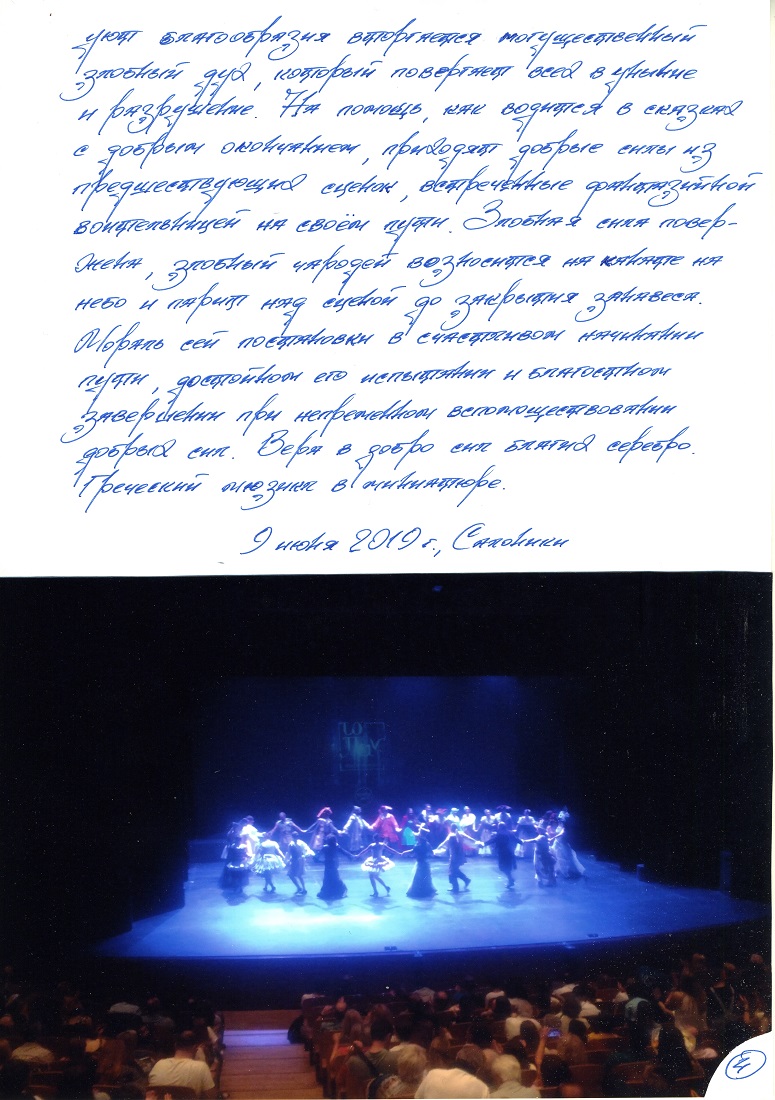 уют благообразия вторгается могущественный
злобный дух, который повергает всех в уныние
и разрушение. На помощь, как водится в сказках
с добрым окончанием, приходят добрые силы из
предшествующих сценок, встреченные фантазийной
воительницей на своём пути. Злобная сила повер-
жена, злобный чародей возносится на канате на
небо и парит над сценой до закрытия занавеса.
Мораль сей постановки в счастливом начинании
пути, достойном его испытании и благостном
завершении при непременном вспомоществовании
добрых сил. Вера в добро сил благих серебро.
Греческий мюзикл в миниатюре.
9 июня 2019 г., Салоники
4